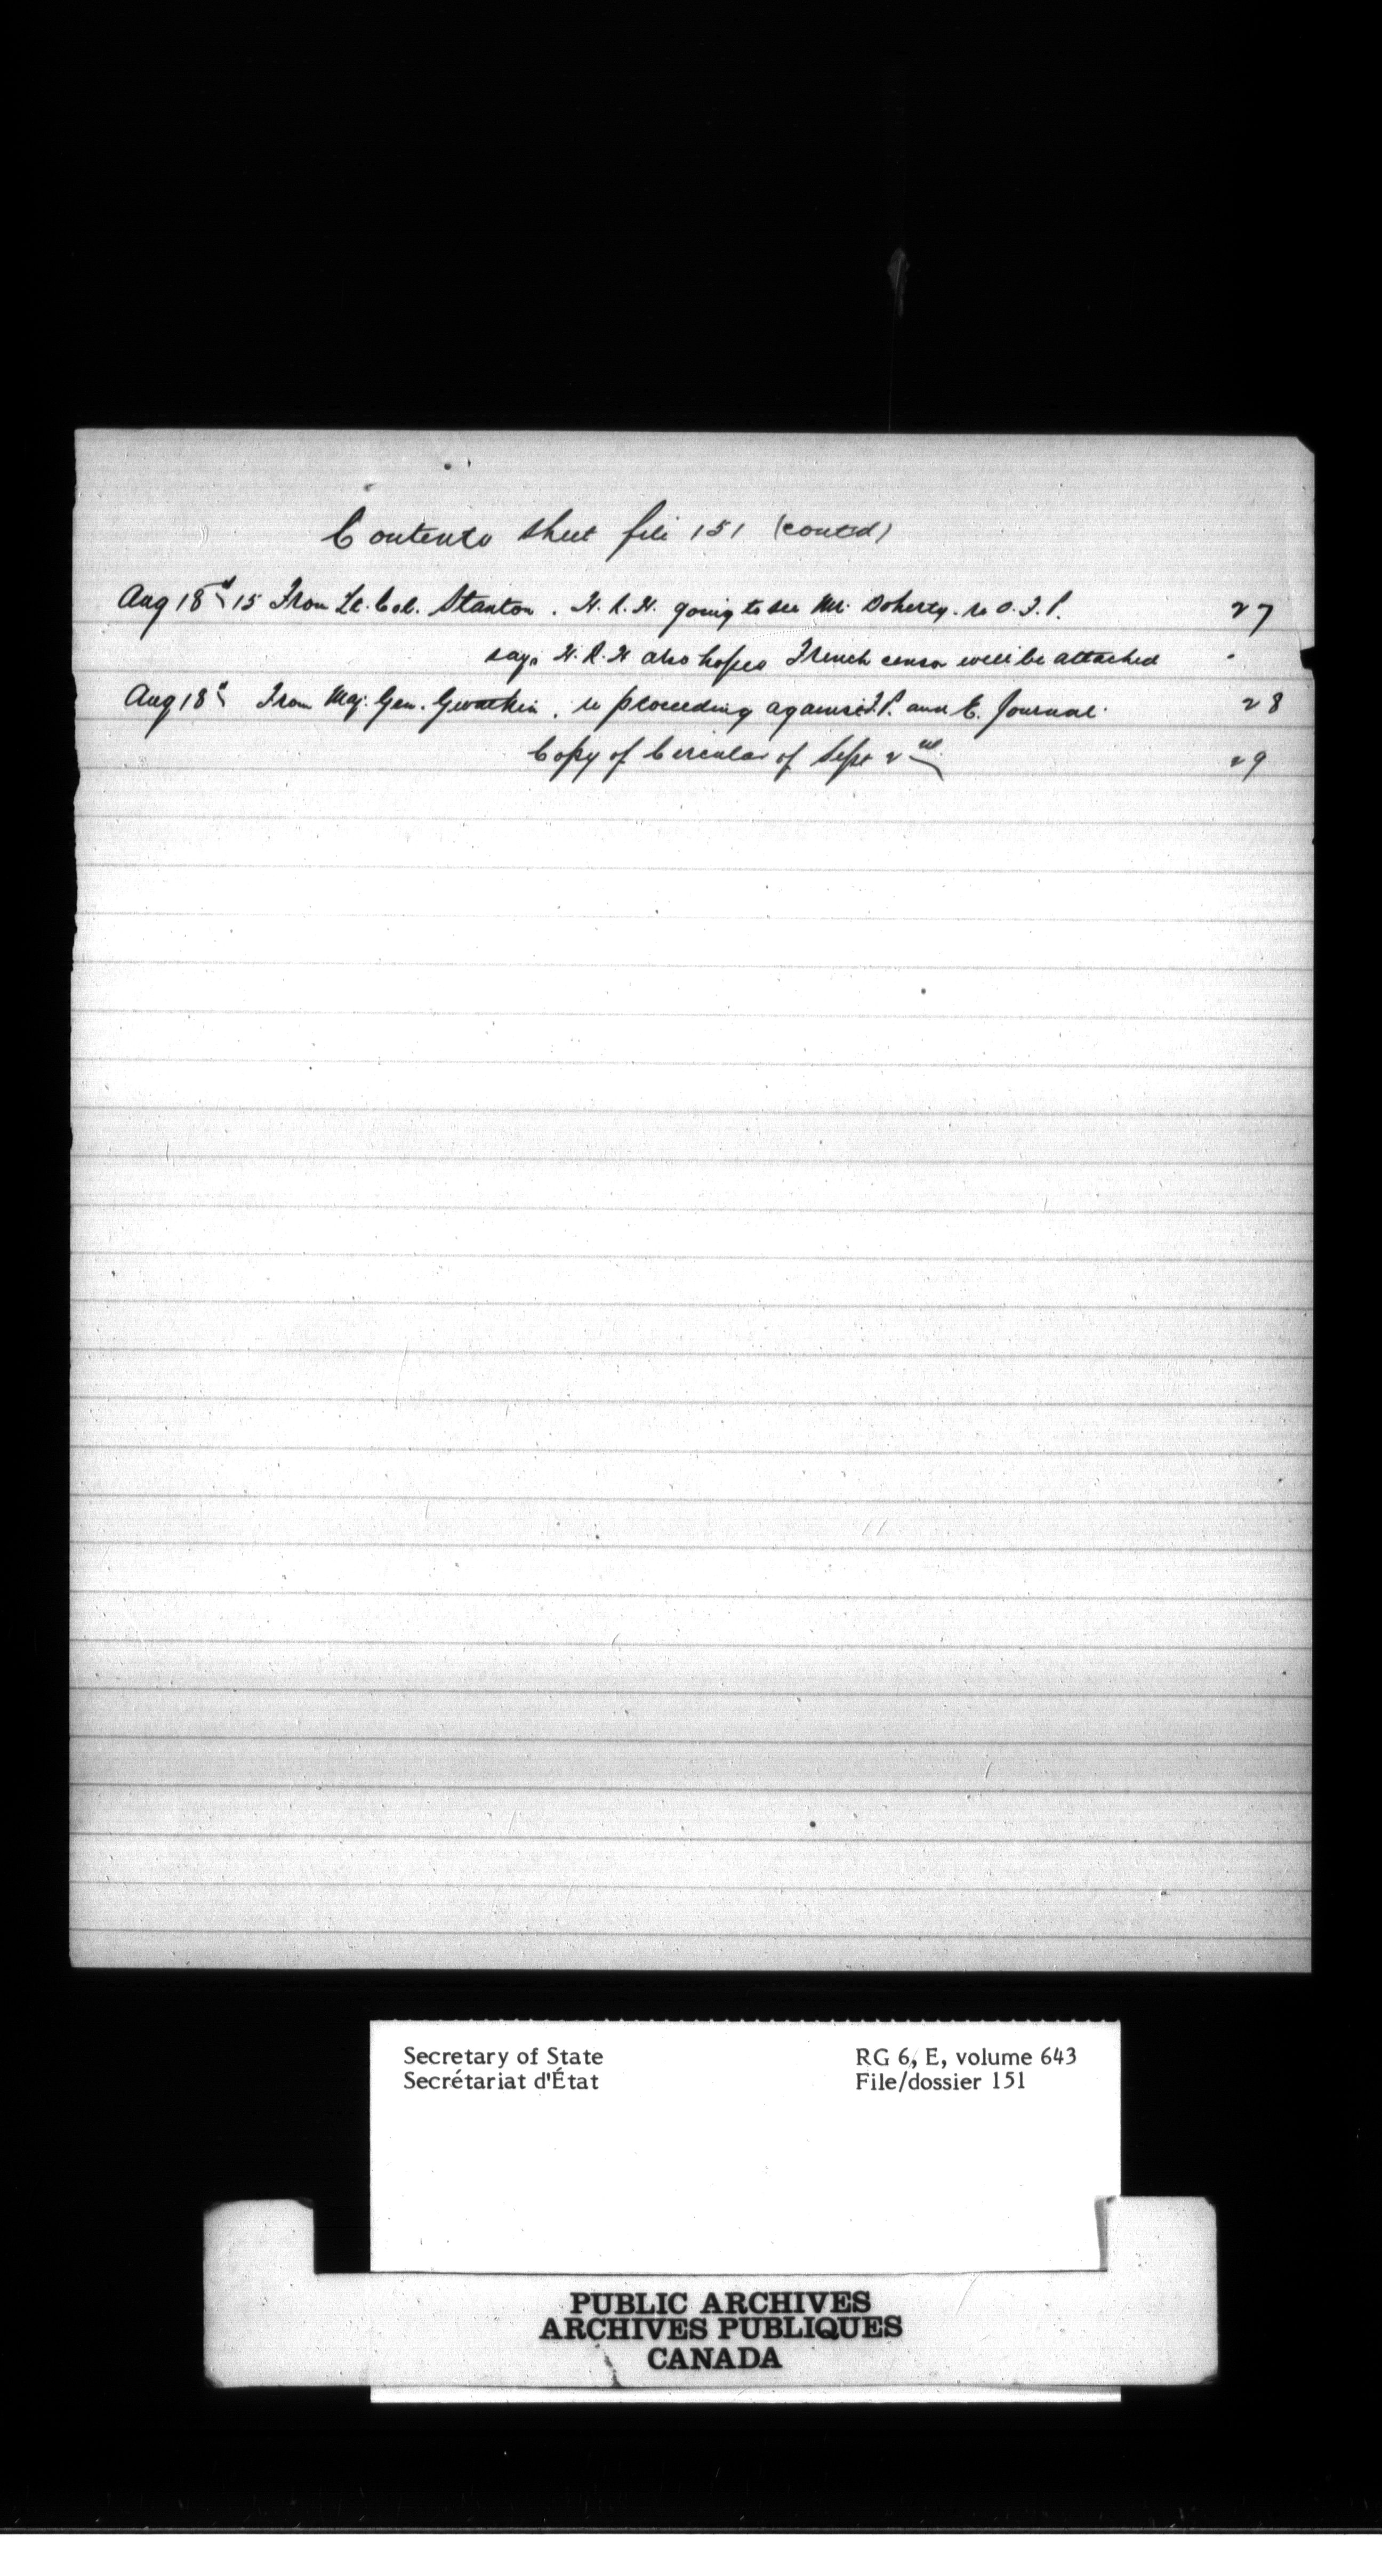 Contents sheet file 151 (contd)
Aug 18th 15 From Lt. Col. Stanton. H.R.H. going to see Mr. Doherty. re O.F.P. 27
says H.R.H also hopes French censor will be attached "
Aug 18th From Maj. Gen. Gwatkin, re proceeding against F.P. and E. Journal. 28
Copy of Circular of Sept 2nd 29
Secretary of State RG 6, E, volume 643
Secrétariat d'État File/dossier 151
PUBLIC ARCHIVES
ARCHIVES PUBLIQUES
CANADA